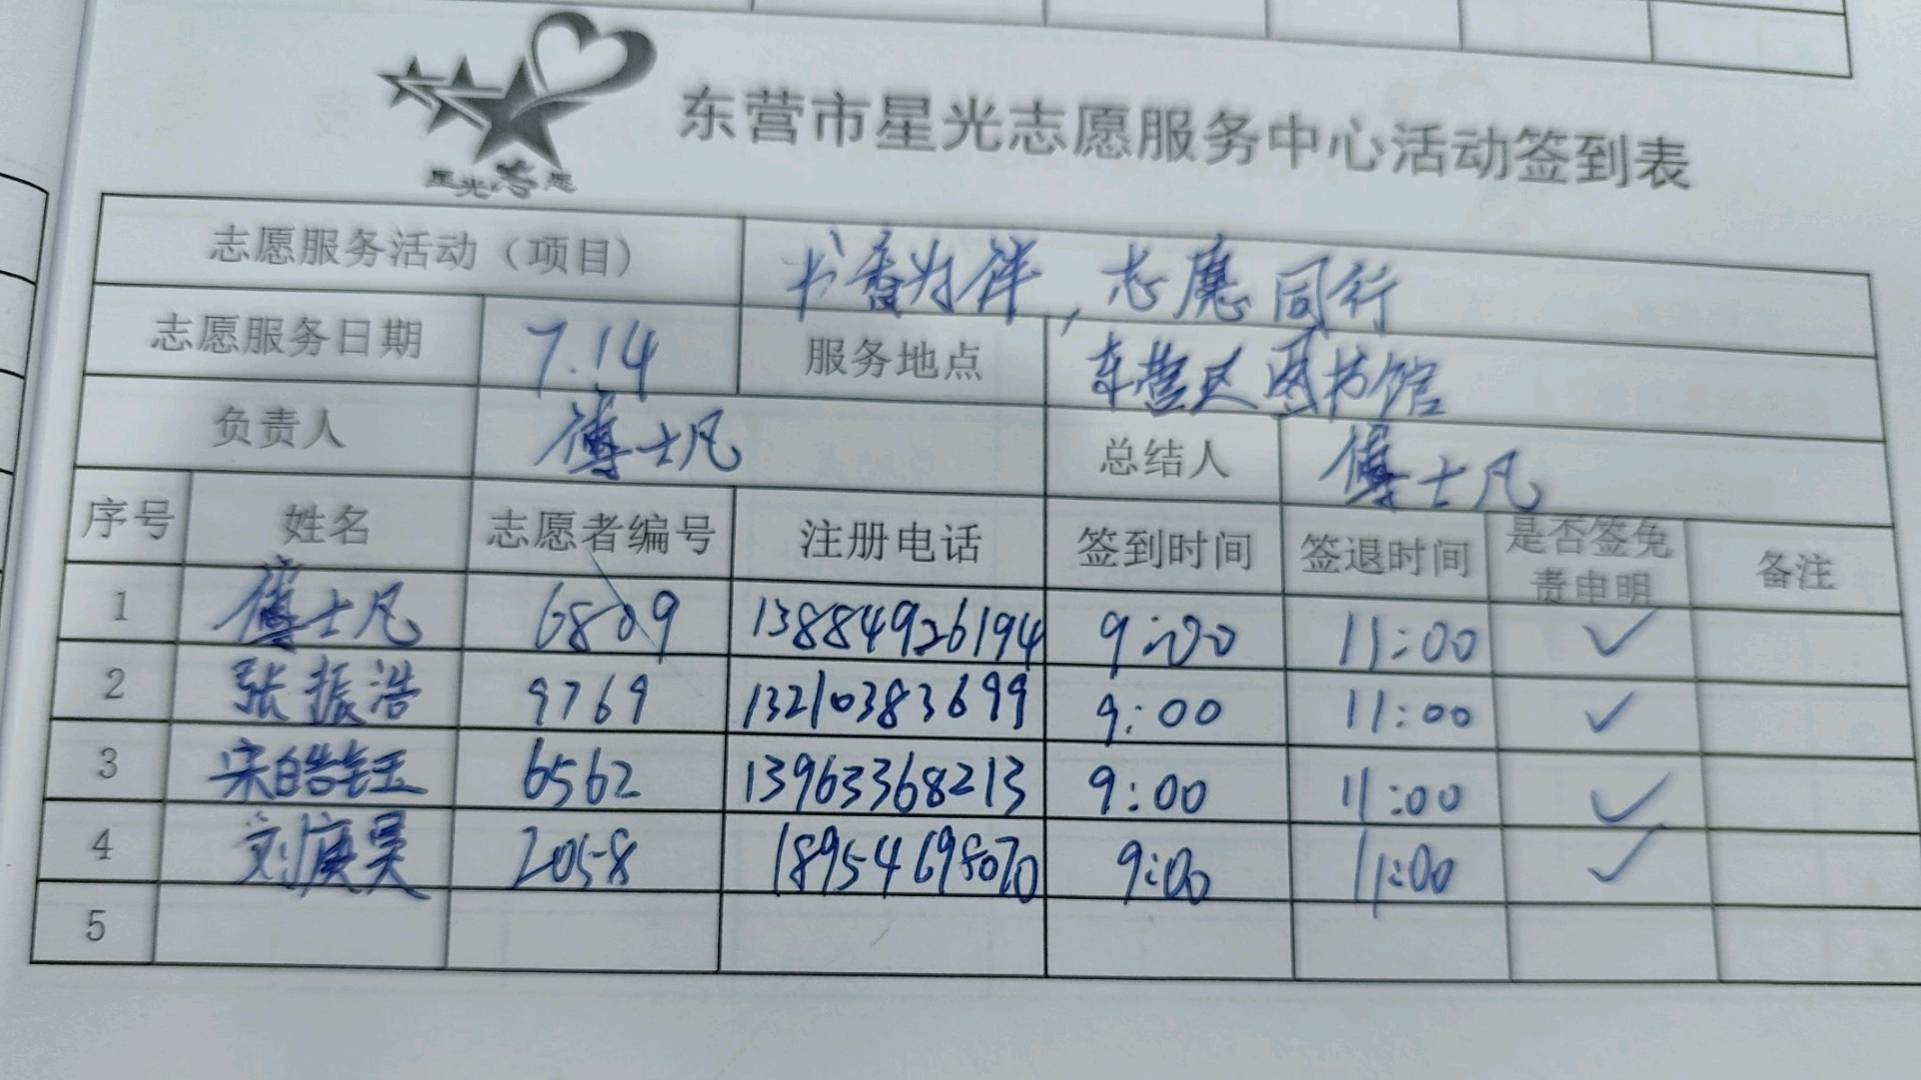 星光志愿
东营市星光志愿服务中心活动签到表
志愿服务活动（项目） 书香为伴，志愿同行
志愿服务日期 7.14 服务地点 东营区图书馆
负责人 傅士凡 总结人 傅士凡
序号 姓名 志愿者编号 注册电话 签到时间 签退时间 是否签免责申明 备注
1 傅士凡 6809 13884926194 9:00 11:00 ✓
2 张振浩 9769 13210383699 9:00 11:00 ✓
3 宋皓钰 6562 13963368213 9:00 11:00 ✓
4 刘庚昊 2058 18954698070 9:00 11:00 ✓
5